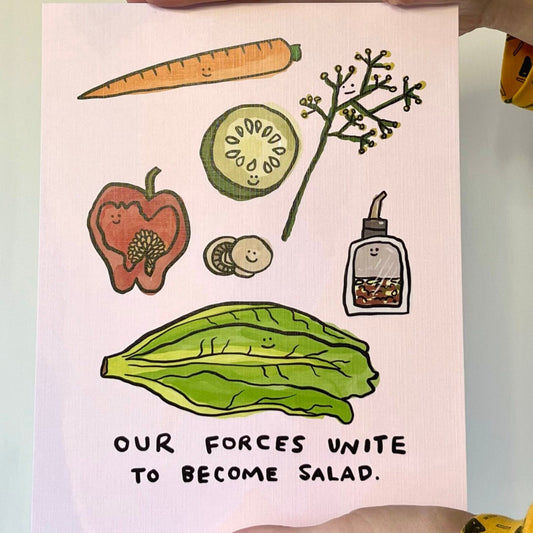 OUR FORCES UNITE
TO BECOME SALAD.